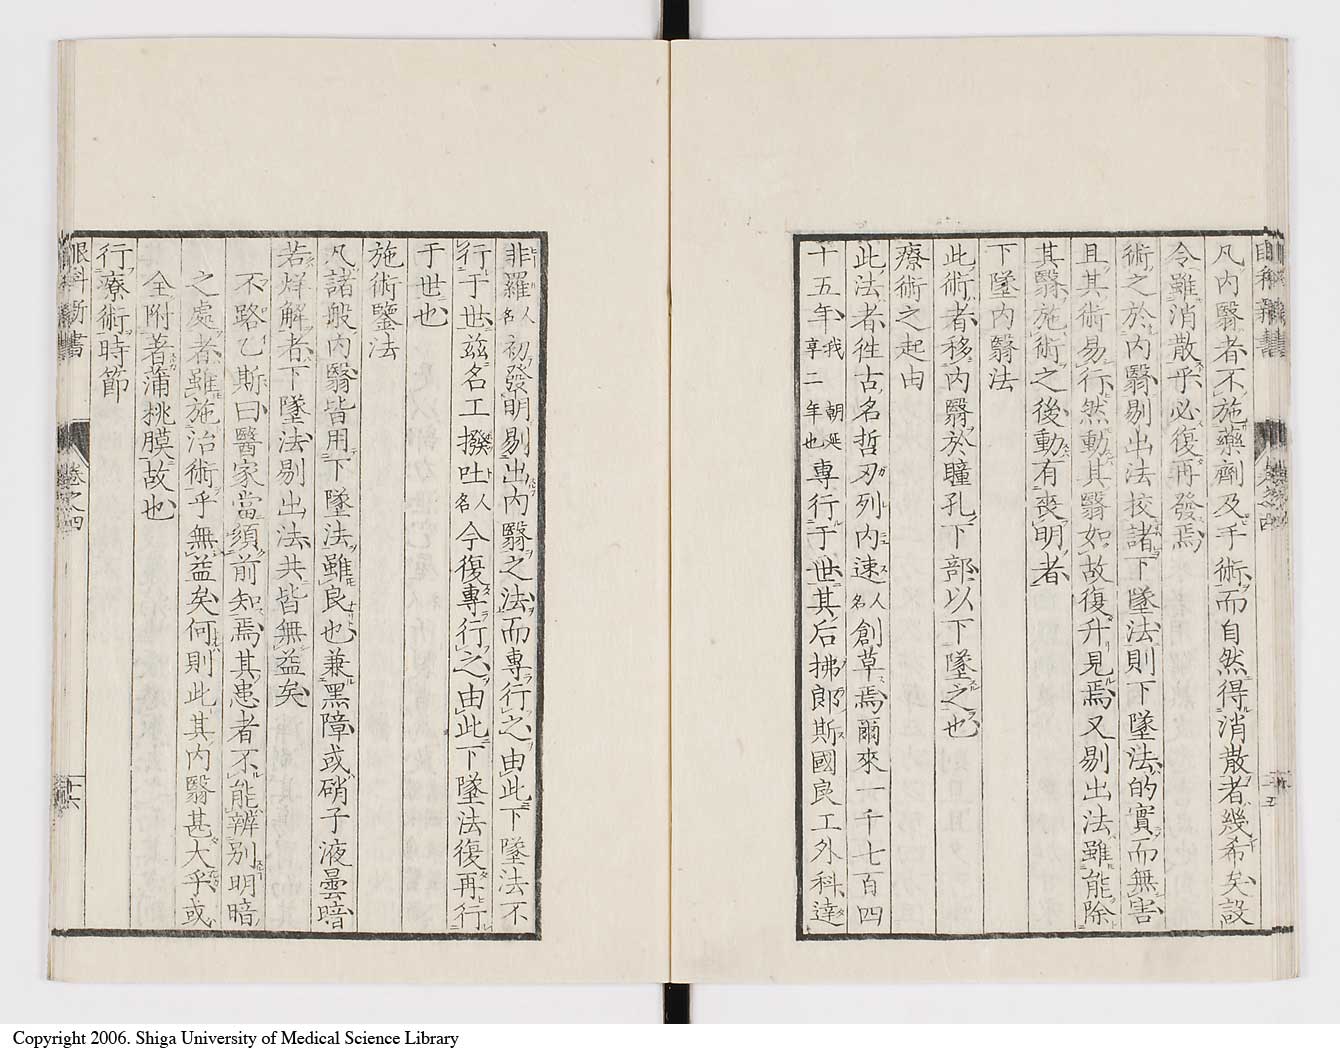 凡内翳者不施藥劑及手術而自然得消散者幾希矣設
令雖消散乎必復再發焉
術之於内翳剔出法校諸下墜法則下墜法的實而無害
且其術易行然動其翳如故復升見焉又剔出法雖能除
其翳施術之後動有喪明者
下墜内翳法
此術者移内翳於瞳孔下部以下墜之也
療術之起由
此法者徃古名哲刃列内速人名創草焉爾來一千七百四
十五年我朝延享二年也專行于世其后拂郎斯國良工外科達
非羅人名初發明剔出内翳之法而專行之由此下墜法不
行于世茲名工撥吐人名今復專行之由此下墜法復再行
于世也
施術鑒法
凡諸般内翳皆用下墜法雖良也兼黑障或硝子液曇暗
若烊解者下墜法剔出法共皆無益矣
不路乙斯曰醫家當須前知焉其患者不能辨別明暗
之處者雖施治術乎無益矣何則此其内翳甚大乎或
全附着蒲桃膜故也
行療術時節
眼科新書
卷之四
十六